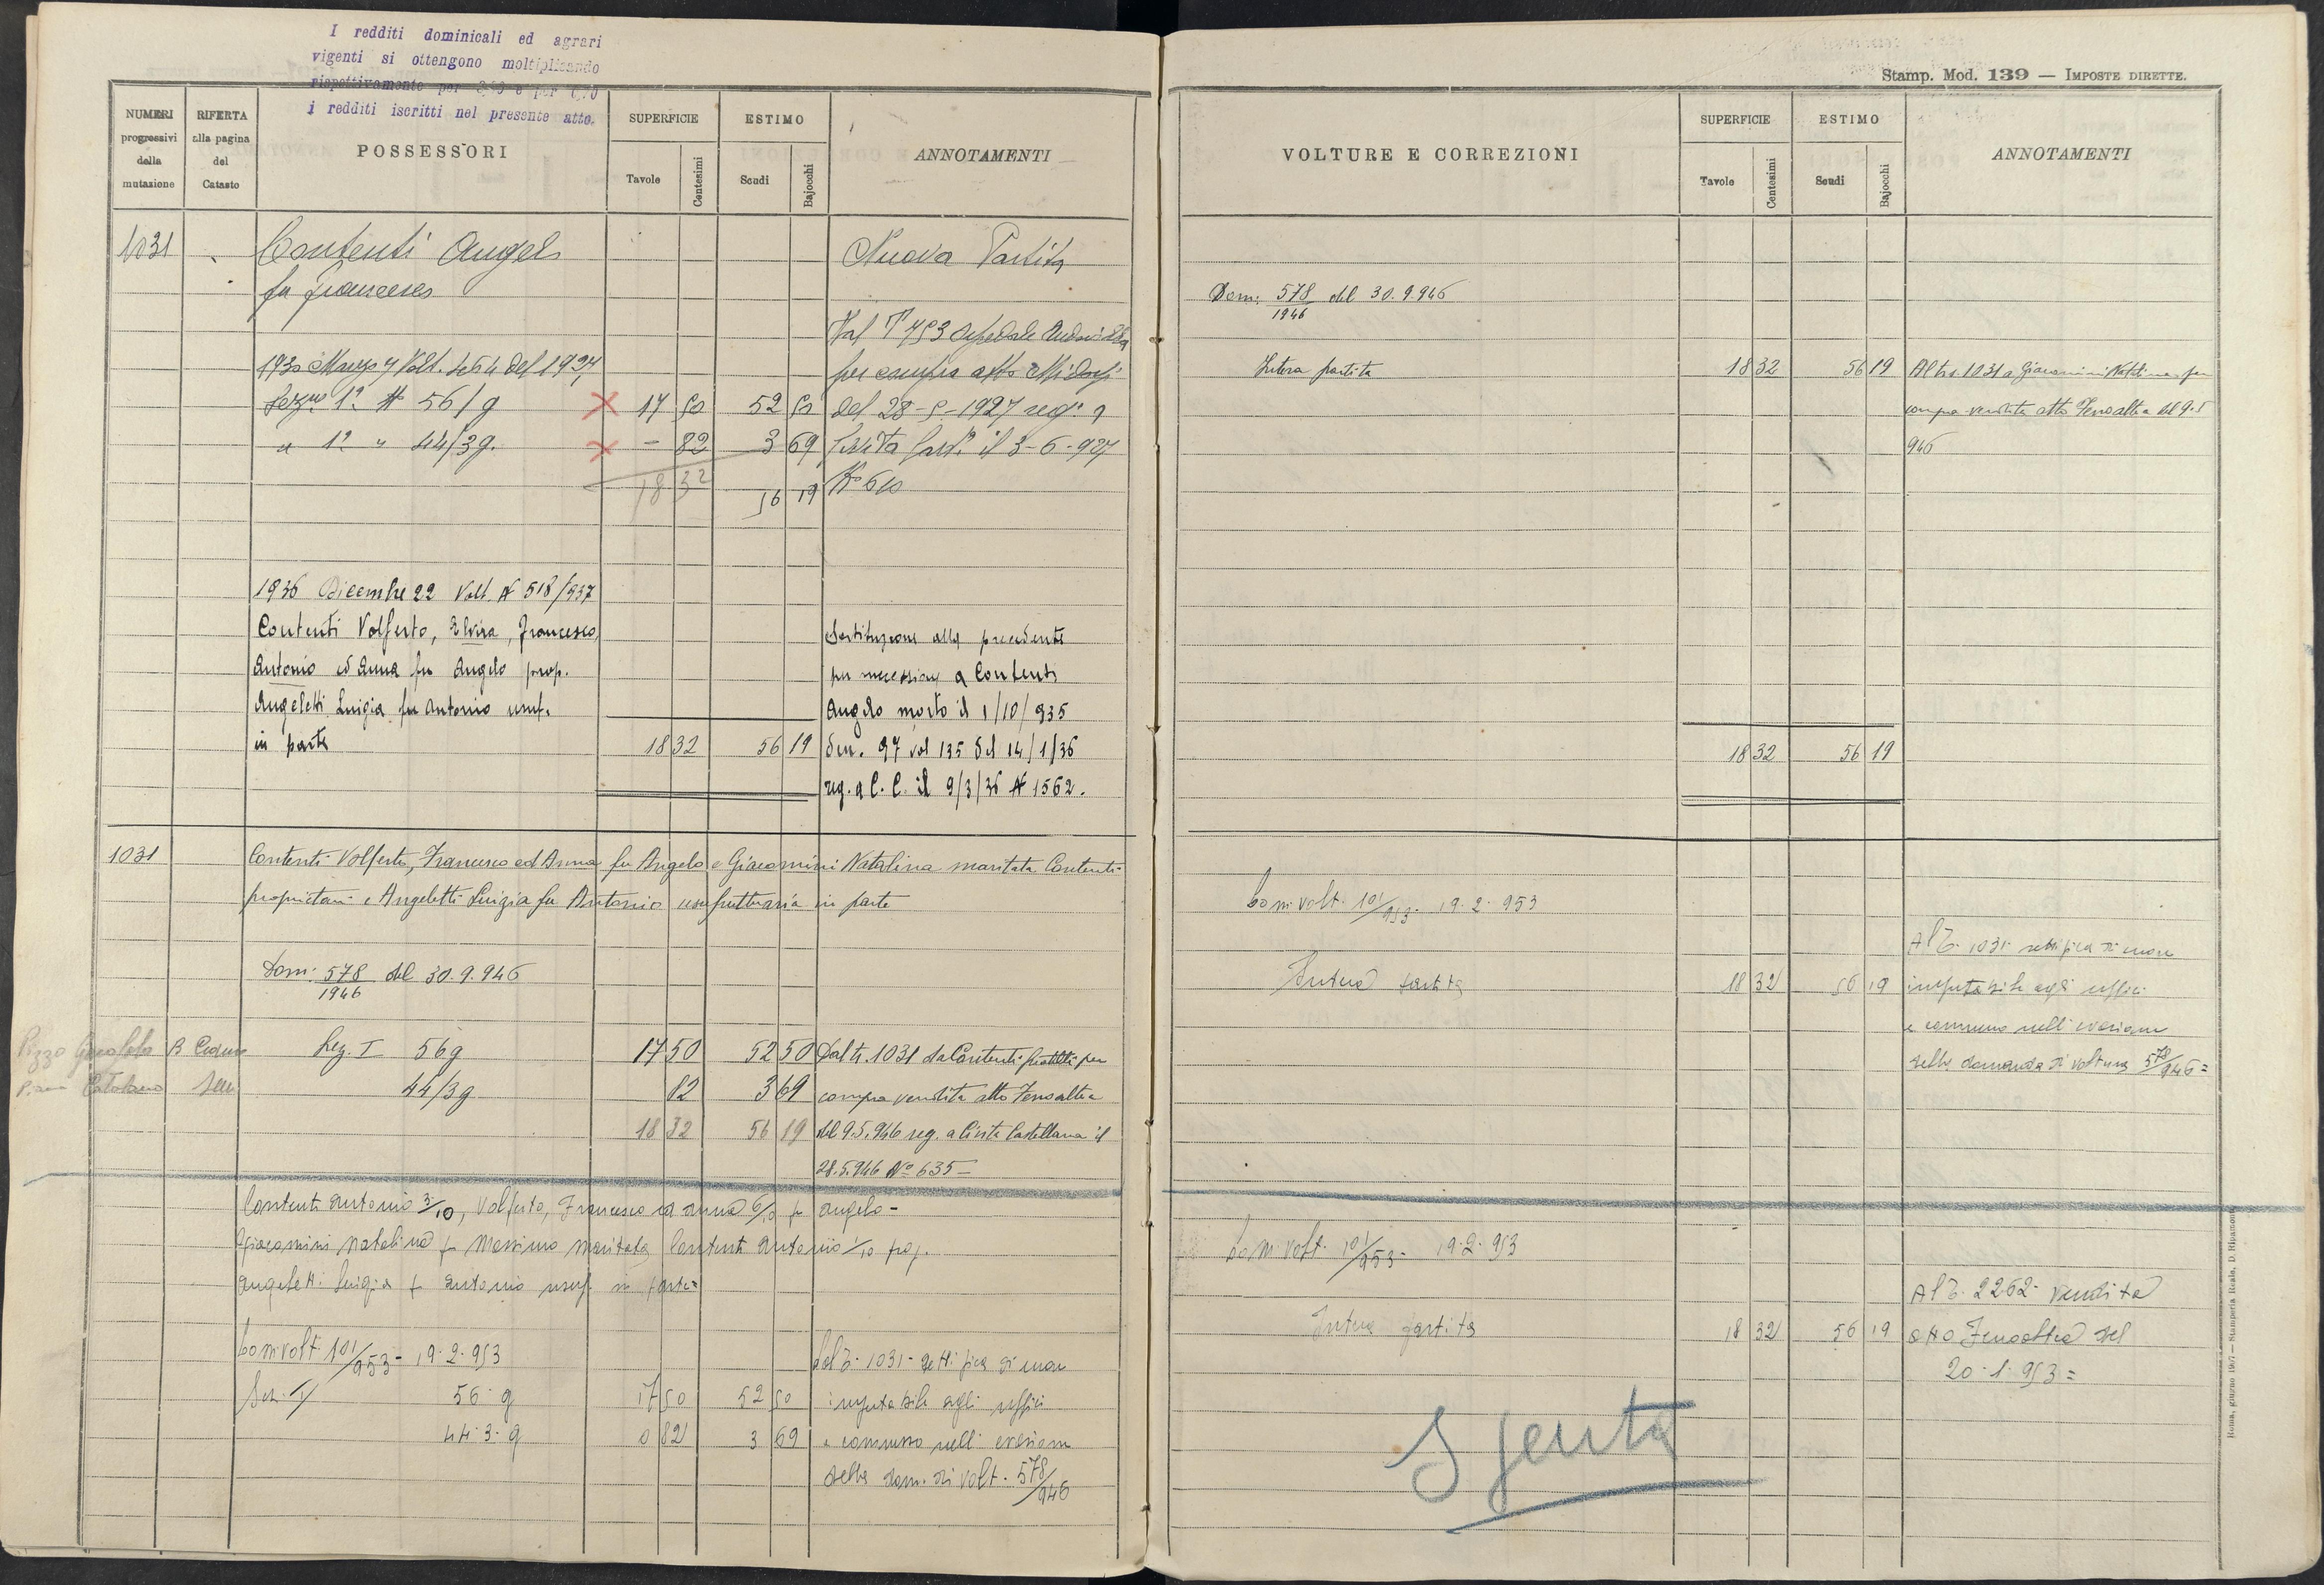 I redditi dominicali ed agrari
vigenti si ottengono moltiplicando
rispettivamente per e per
i redditi iscritti nel presente atto.
NUMERI progressivi della mutazione
RIFERTA alla pagina del Catasto
POSSESSORI
SUPERFICIE
Tavole
Centesimi
ESTIMO
Scudi
Bajocchi
ANNOTAMENTI
1031 Contenti Angelo Nuova Partita
fu Francesco
Dal T 753 Ospedale
1930 Marzo 7 Volt. del 1927 per compra atto
Sezne 1ª N 56/g 17 50 52 50 del 28-5-1927 reg.
" 1ª " 44/3g. - 82 3 69 Civita Cast. il 3-6-927
18 32 56 19 N 610
1936 Dicembre 22 Volt. N 518/937
Contenti Volferto, Elvira, Francesco, Sostituzione alla precedente
Antonio ed Anna fu Angelo prop. per successione a Contenti
Angeletti Luigia fu Antonio usuf. Angelo morto il 1/10/935
in parte 18 32 56 19 den. 97 vol 135 del 14/1/36
reg. a C. C. il 9/3/36 N 1562.
1031 Contenti Volferto, Francesco ed Anna fu Angelo e Giacomini Natalina maritata Contenti
proprietari e Angeletti Luigia fu Antonio usufruttuaria in parte
Dom: 578/1946 del 30.9.946
Pizzo B Ceduo Sez. I 56g 17 50 52 50 Dal tr. 1031 da Contenti per
Sem 44/3g 82 3 69 compra vendita atto Fenoaltea
18 32 56 19 del 9.5.946 reg. a Civita Castellana il
28.5.946 No 635 -
Contenti Antonio 3/10, Volferto, Francesco ed Anna 6/10 fu Angelo -
Giacomini Natalina fu Massimo maritata Contenti Antonio 1/10 prop.
Angeletti Luigia fu Antonio usuf. in parte =
Dom volt. 101/953 - 19.2.953 Dal T. 1031 - rettifica di errore
Sez. I 56 g 17 50 52 50 imputabile agli uffici
44.3.g 0 82 3 69 e commesso nell'evasione
della dom. di volt. 578/946
Stamp. Mod. 139 — IMPOSTE DIRETTE.
VOLTURE E CORREZIONI
SUPERFICIE
Tavole
Centesimi
ESTIMO
Scudi
Bajocchi
ANNOTAMENTI
Dom: 578/1946 del 30.9.946
Intera partita 18 32 56 19 Al tr. 1031 a Giacomini Natalina per
compra-vendita atto Fenoaltea del 9.5
946
18 32 56 19
Dom volt. 101/953 - 19.2.953
Al T. 1031 - rettifica di errore
Intera partita 18 32 56 19 imputabile agli uffici
e commesso nell'evasione
della domanda di voltura 578/946 =
Dom volt. 101/953 - 19.2.953
Al T. 2262 - vendita
Intera partita 18 32 56 19 atto Fenoaltea del
20.1.953 =
Spenta
Roma, giugno 1927 — Stamperia Reale, D. Ripamonti